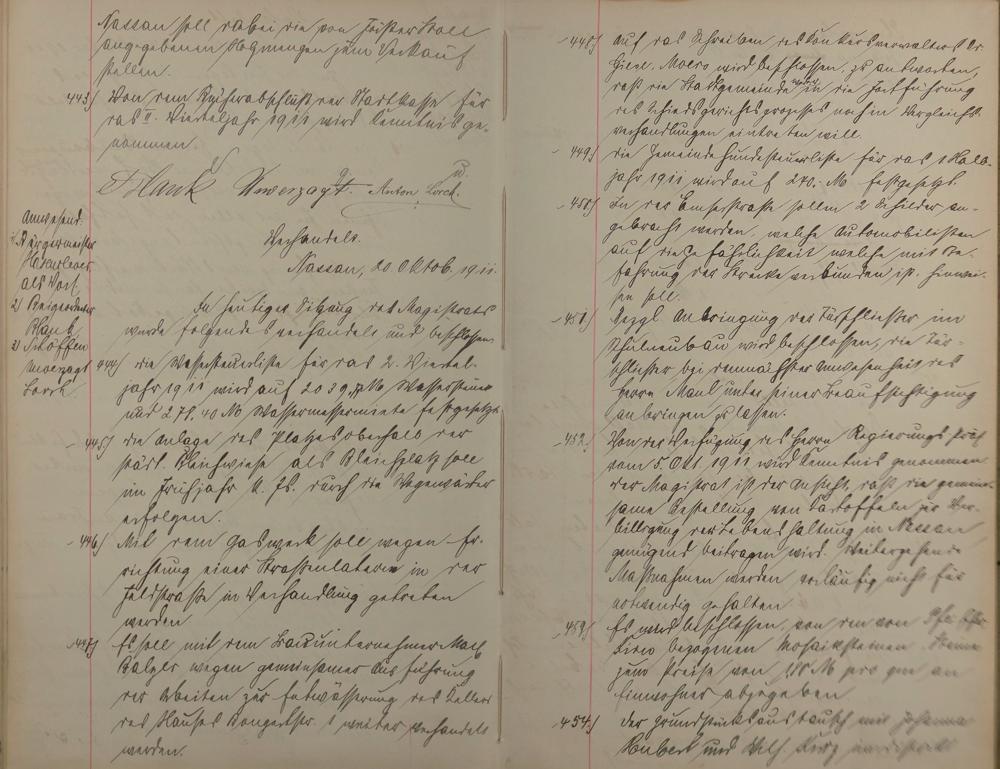 Nassau soll dabei die von Förster Stoll
angegebenen Holzungen zum Verkauf
stellen.
443) Von dem Bücherabschluß der Stadtkasse für
das II. Vierteljahr 1911 wird Kenntnis ge-
nommen.
Hank Unverzagt. Anton Lorch.
Anwesend:
1) Bürgermeister
Hasenclever
als Vors.
2) Beigeordneter
Hank
3) Schöffen
Unverzagt
Lorch
Verhandelt.
Nassau, 20. Oktob. 1911.
In heutiger Sitzung des Magistrats
wurde folgendes verhandelt und beschlossen
444) die Wassersteuerliste für das 2. Viertel-
jahr 1911 wird auf M Wassersteuer
und 278,40 M Wassermessermiete festgesetzt.
445) die Anlage des Platzes oberhalb der
städt. Bleichwiese als Bleichplatz soll
im Frühjahr k. Js. durch die Wegewärter
erfolgen.
446) Mit dem Gaswerk soll wegen Er-
richtung einer Straßenlaterne in der
Feldstraße in Verhandlung getreten
werden
447) Es soll mit dem Bauunternehmer
Balzer wegen gemeinsamer Ausführung
der Arbeiten zur Entwässerung des Kellers
des Hauses 1 weiter verhandelt
werden.
448) Auf das Schreiben des Konkursverwalters Dr
wird beschlossen, zu antworten,
daß die Stadtgemeinde weder in die Fortführung
des Schiedsgerichtsprozesses noch in Vergleichs-
verhandlungen eintreten will.
449) die Gemeindehundesteuerliste für das 1 Halb-
jahr 1911 wird auf 270.- M festgesetzt.
450) In der Emserstraße sollen 2 Schilder an-
gebracht werden, welche Automobilisten
auf die Gefährlichkeit welche mit Be-
fahrung der Strecke verbunden ist, hinwei-
sen soll.
451) Bezgl Anbringung der Türschließer im
Schulneubau wird beschlossen, die Tür-
schließer bei demnächster Anwesenheit des
Herrn Maul unter seiner Beaufsichtigung
anbringen zu lassen.
452) Von der Verfügung des Herrn Regierungspräs.
vom 5. Okt. 1911 wird Kenntnis genommen
der Magistrat ist der Ansicht, daß die gemein-
same Bestellung von Kartoffeln zur Ver-
billigung der Lebenshaltung in Nassau
genügend beitragen wird. Weitergehende
Maßnahmen werden vorläufig nicht für
notwendig gehalten
453) Es wird beschlossen, von den von
bezogenen Mosaiksteinen
zum Preise von M pro qm an
Einwohner abzugeben
454) der Grundstücksaustausch mit Johanna
und Wilh.